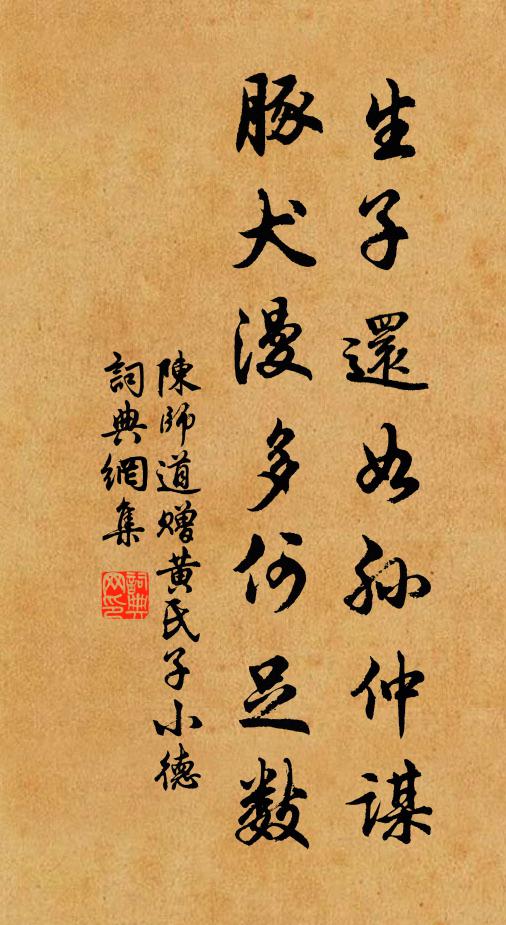 生子還如孫仲謀
豚犬漫多何足数
陳師道贈黄氏子小德
詞典網集
詞典网印